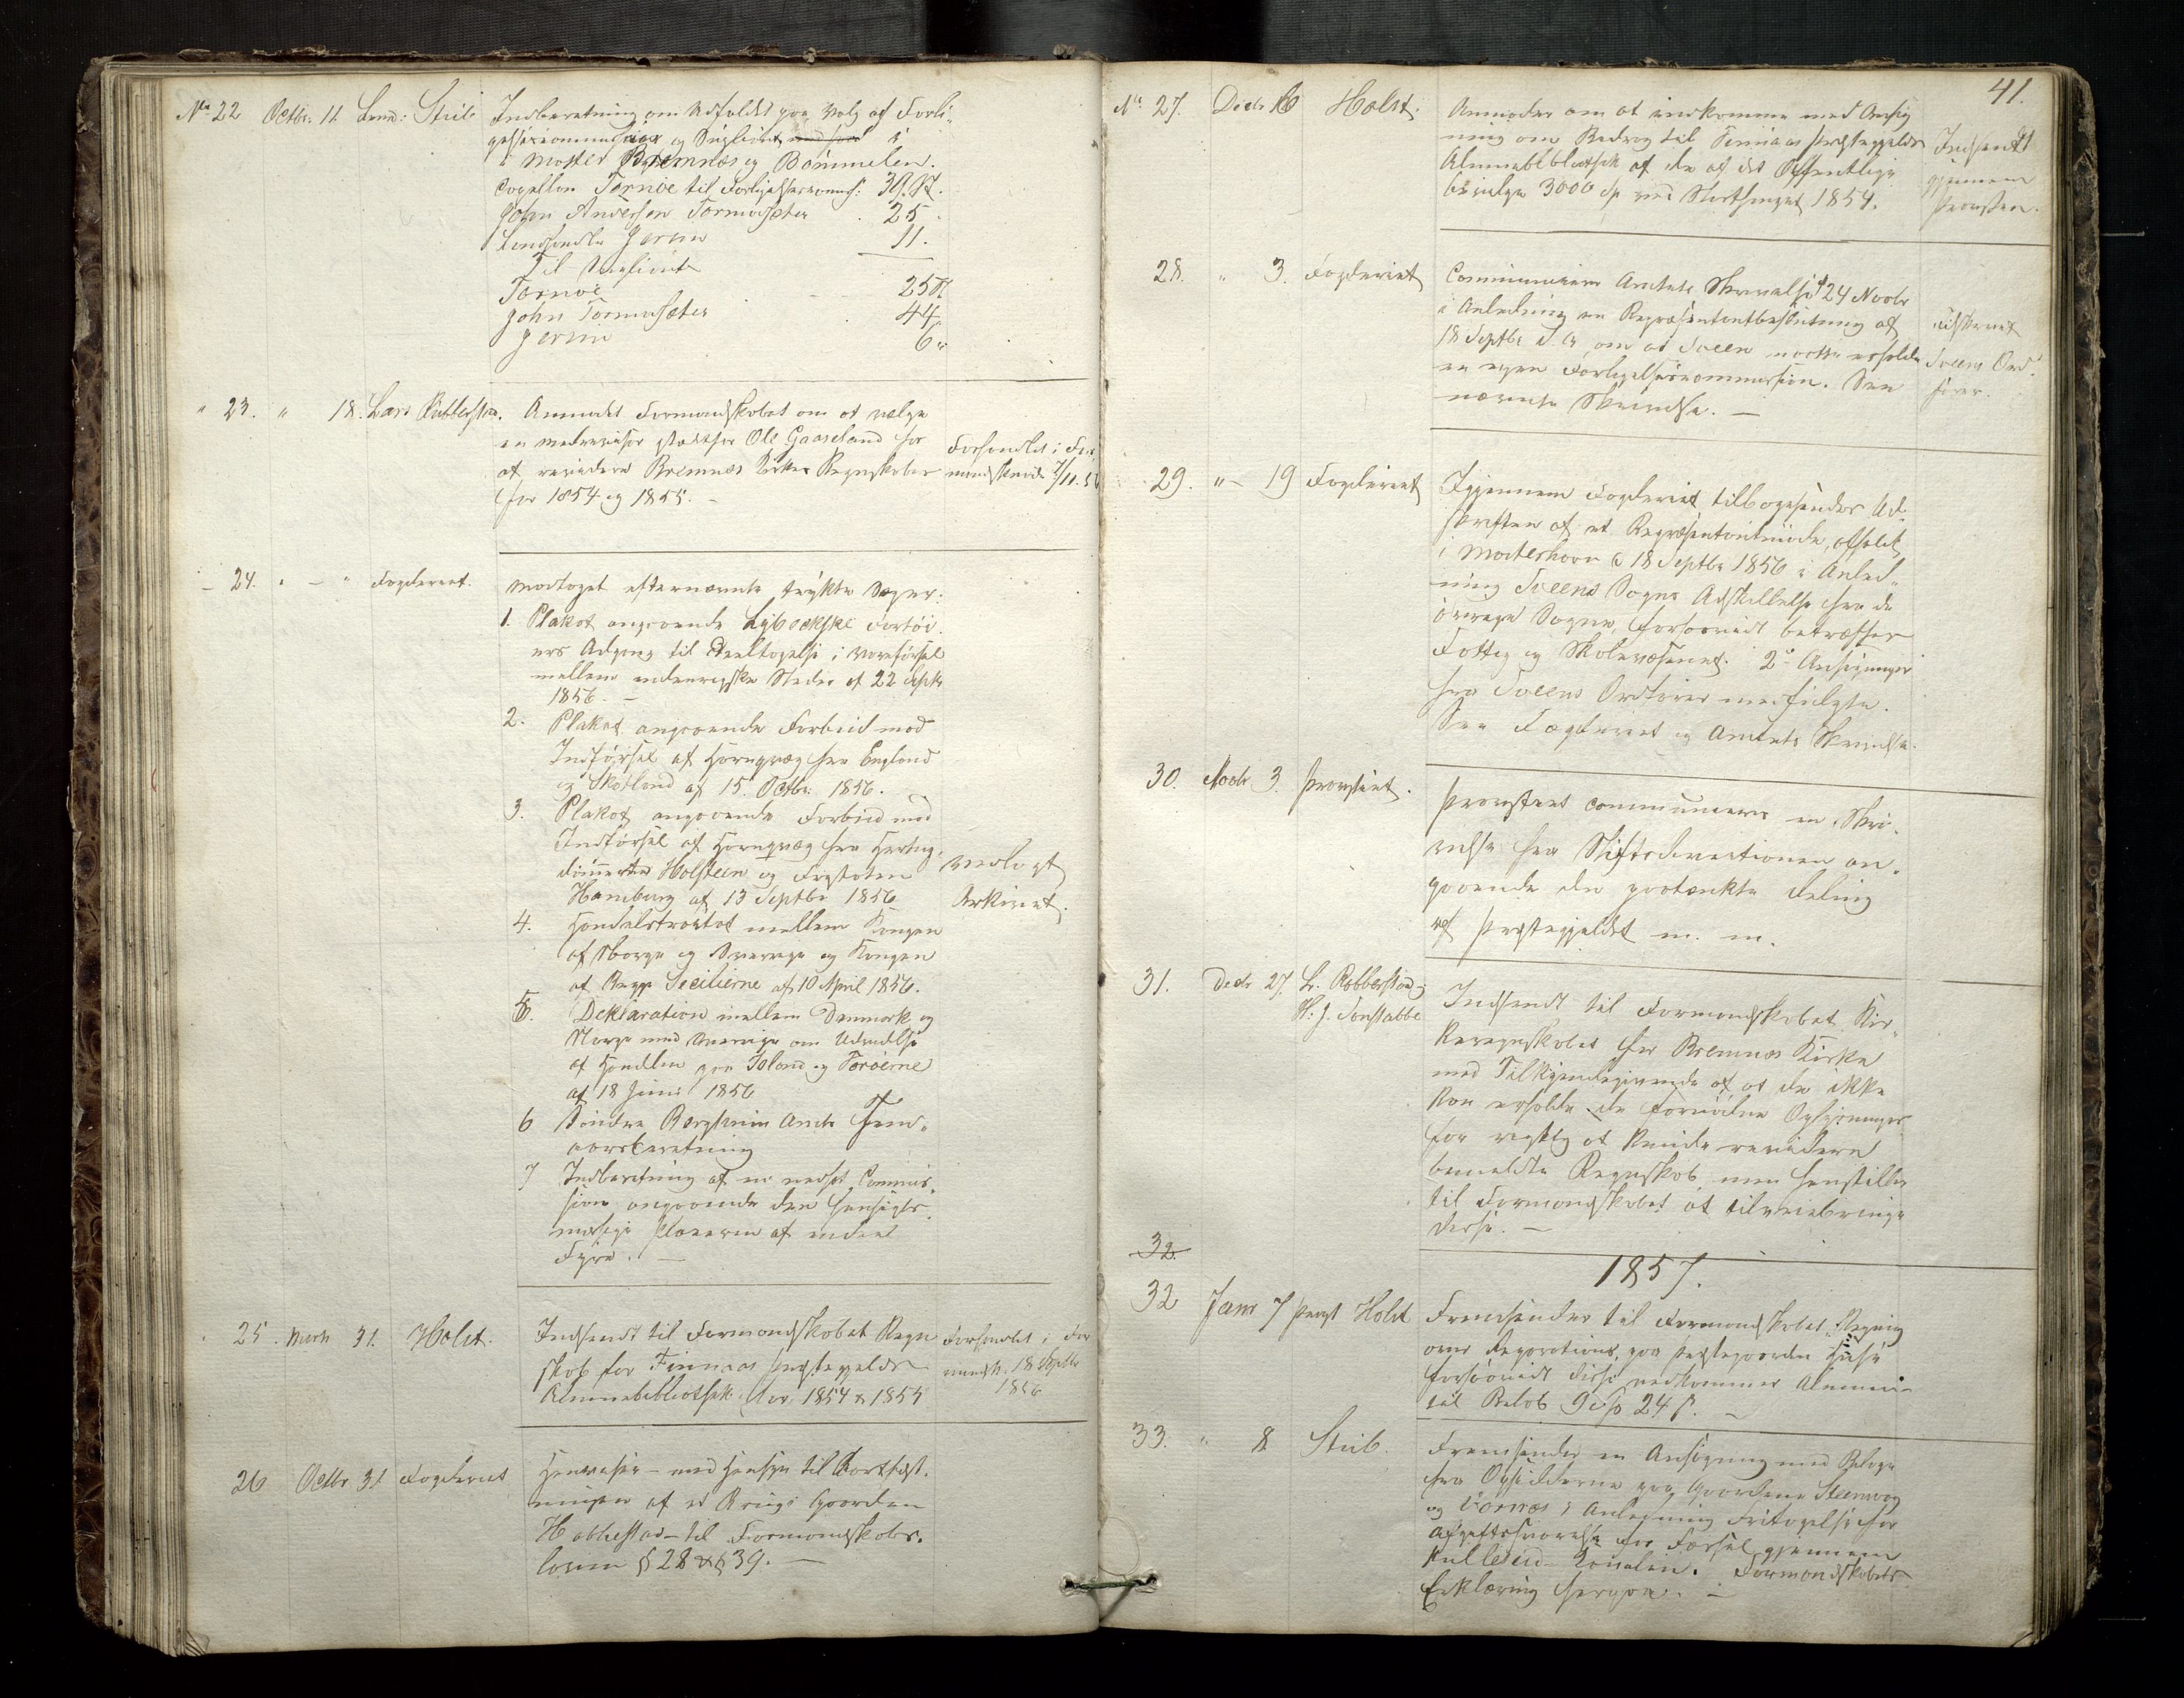 No 22 Octbr. 11. Lensm: Stub Indberetning om Udfaldet paa Valg af Forli-
gelseskommissair og Supleant i
i Moster Bremnæs og Bømmelen.
Capellan Tornøe til Forligelseskommis: 39. St.
John Andersen Tormodsæter 25.
Lensmand Gerim 11.
Til Supleant
Tornøe 25 St
John Tormodsæter 44.
Gerim 6 "
" 23. " 18. Lars Rubberstad. Anmodet Formandskabet om at vælge
en Medrevisor istedetfor Ole Gaaseland for
at revidere Bremnæs Kirkes Regnskaber
for 1854 og 1855. –
Forhandlet i For-
mandskabet 7/11. 56
– 24. " – " Fogderiet. Modtaget efternævnte trykte Sager:
1. Plakat angaaende Lybækske Fartøi-
ers Adgang til Deeltagelse i Vareførsel
mellem indenrigske Steder af 22 Septbr
1856. –
2. Plakat angaaende Forbud mod
Indførsel af Hornqvæg fra England
og Skotland af 15. Octbr. 1856.
3. Plakat angaaende Forbud mod
Indførsel af Hornqvæg fra Hertug-
dømmet Holsteen og Fristaten
Hamburg af 13 Septbr 1856
4. Handelstraktat mellem Kongen
af Norge og Sverrige og Kongen
af Begge Sicilierne af 10 April 1856.
5. Deklaration mellem Danmark og
Norge med Sverrige om Udvidelse
af Handelen paa Island og Færøerne
af 18 Juni 1856
6 Søndre Bergenhus Amts Fem-
aarsberetning
7 Indberetning af en nedsat Commis-
sion angaaende den hensigts-
mæssige Placeren af endeel
Fyre. –
Vedlagt
Arkivet.
25. 31. Holst. Indsendt til Formandskabet Regn-
skab for Finnaas Præstegjelds
Almuebibliothek for 1854 & 1855
Forhandlet i For
mandsk. 18 Septbr
1856
26 Octbr 31 Fogderiet Henviser – med Hensyn til Bortfæst-
ningen af et Brug i Gaarden
Habbestad – til Formandskabs-
loven § 28 & § 39. –
41.
No 27. Decbr 16 Holst. Anmoder om at indkomme med Ansøg-
ning om Bidrag til Finnaas Præstegjelds
Almuebibliothek af de af det Offentlige
bevilgede 3000 Spd ved Storthinget 1854.
Indsendt
gjennem
Provsten.
28. " 3. Fogderiet Communicerer Amtets Skrivelse af 24 Novbr
i Anledning en Repræsentantbeslutning af
18 Septbr d. A. om at Sveen maatte erholde
en egen Forligelseskommission. See
nævnte Skrivelse. –
Udskrevet
Sveens Ord-
fører.
29. " – 19 Fogderiet Igjennem Fogderiet tilbagesendes Ud-
skriften af et Repræsentantmøde, afholdt
i Mosterhavn d 18 Septbr 1856 i Anled-
ning Sveens Sogns Adskillelse fra de
øvrige Sogne, forsaavidt betræffer
Fattig og Skolevæsenet. 2de Ansøgninger
fra Sveens Ordfører medfølgte.
See Fogderiets og Amtets Skrivelse.
30. Novbr 3. Provstiet. Provstiet communicerer en Skri-
velse fra Stiftsdirectionen an-
gaaende den paatænkte Deling
af Præstegjeldet m. m.
31. Decbr 27. L. Robberstad og
H. J. Tonstabbe
Indsendt til Formandskabet Kir-
keregnskabet for Bremnes Kirke
med Tilkjendegivende af at de ikke
kan erholde de fornødne Oplysninger
for rigtig at kunde revidere
bemeldte Regnskab, men henstiller
til Formandskabet at tilveiebringe
disse. –
32.
1857.
32 Janr 7 Provst Holst Fremsender til Formandskabet Regning
over Reparation paa Præstegaardens Huse
forsaavidt disse vedkommer Almuen
til Beløb 9 Spd 24 s. –
33. " 8 Stub. Fremsender en Ansøgning med Bilage
fra Opsidderne paa Gaardene Steenvog
og Vornæs i Anledning Fritagelse for
Afgiftssvarelse for Færsel gjennem
Kulleseid-Kanalen. Formandskabets
Erklæring herpaa. –